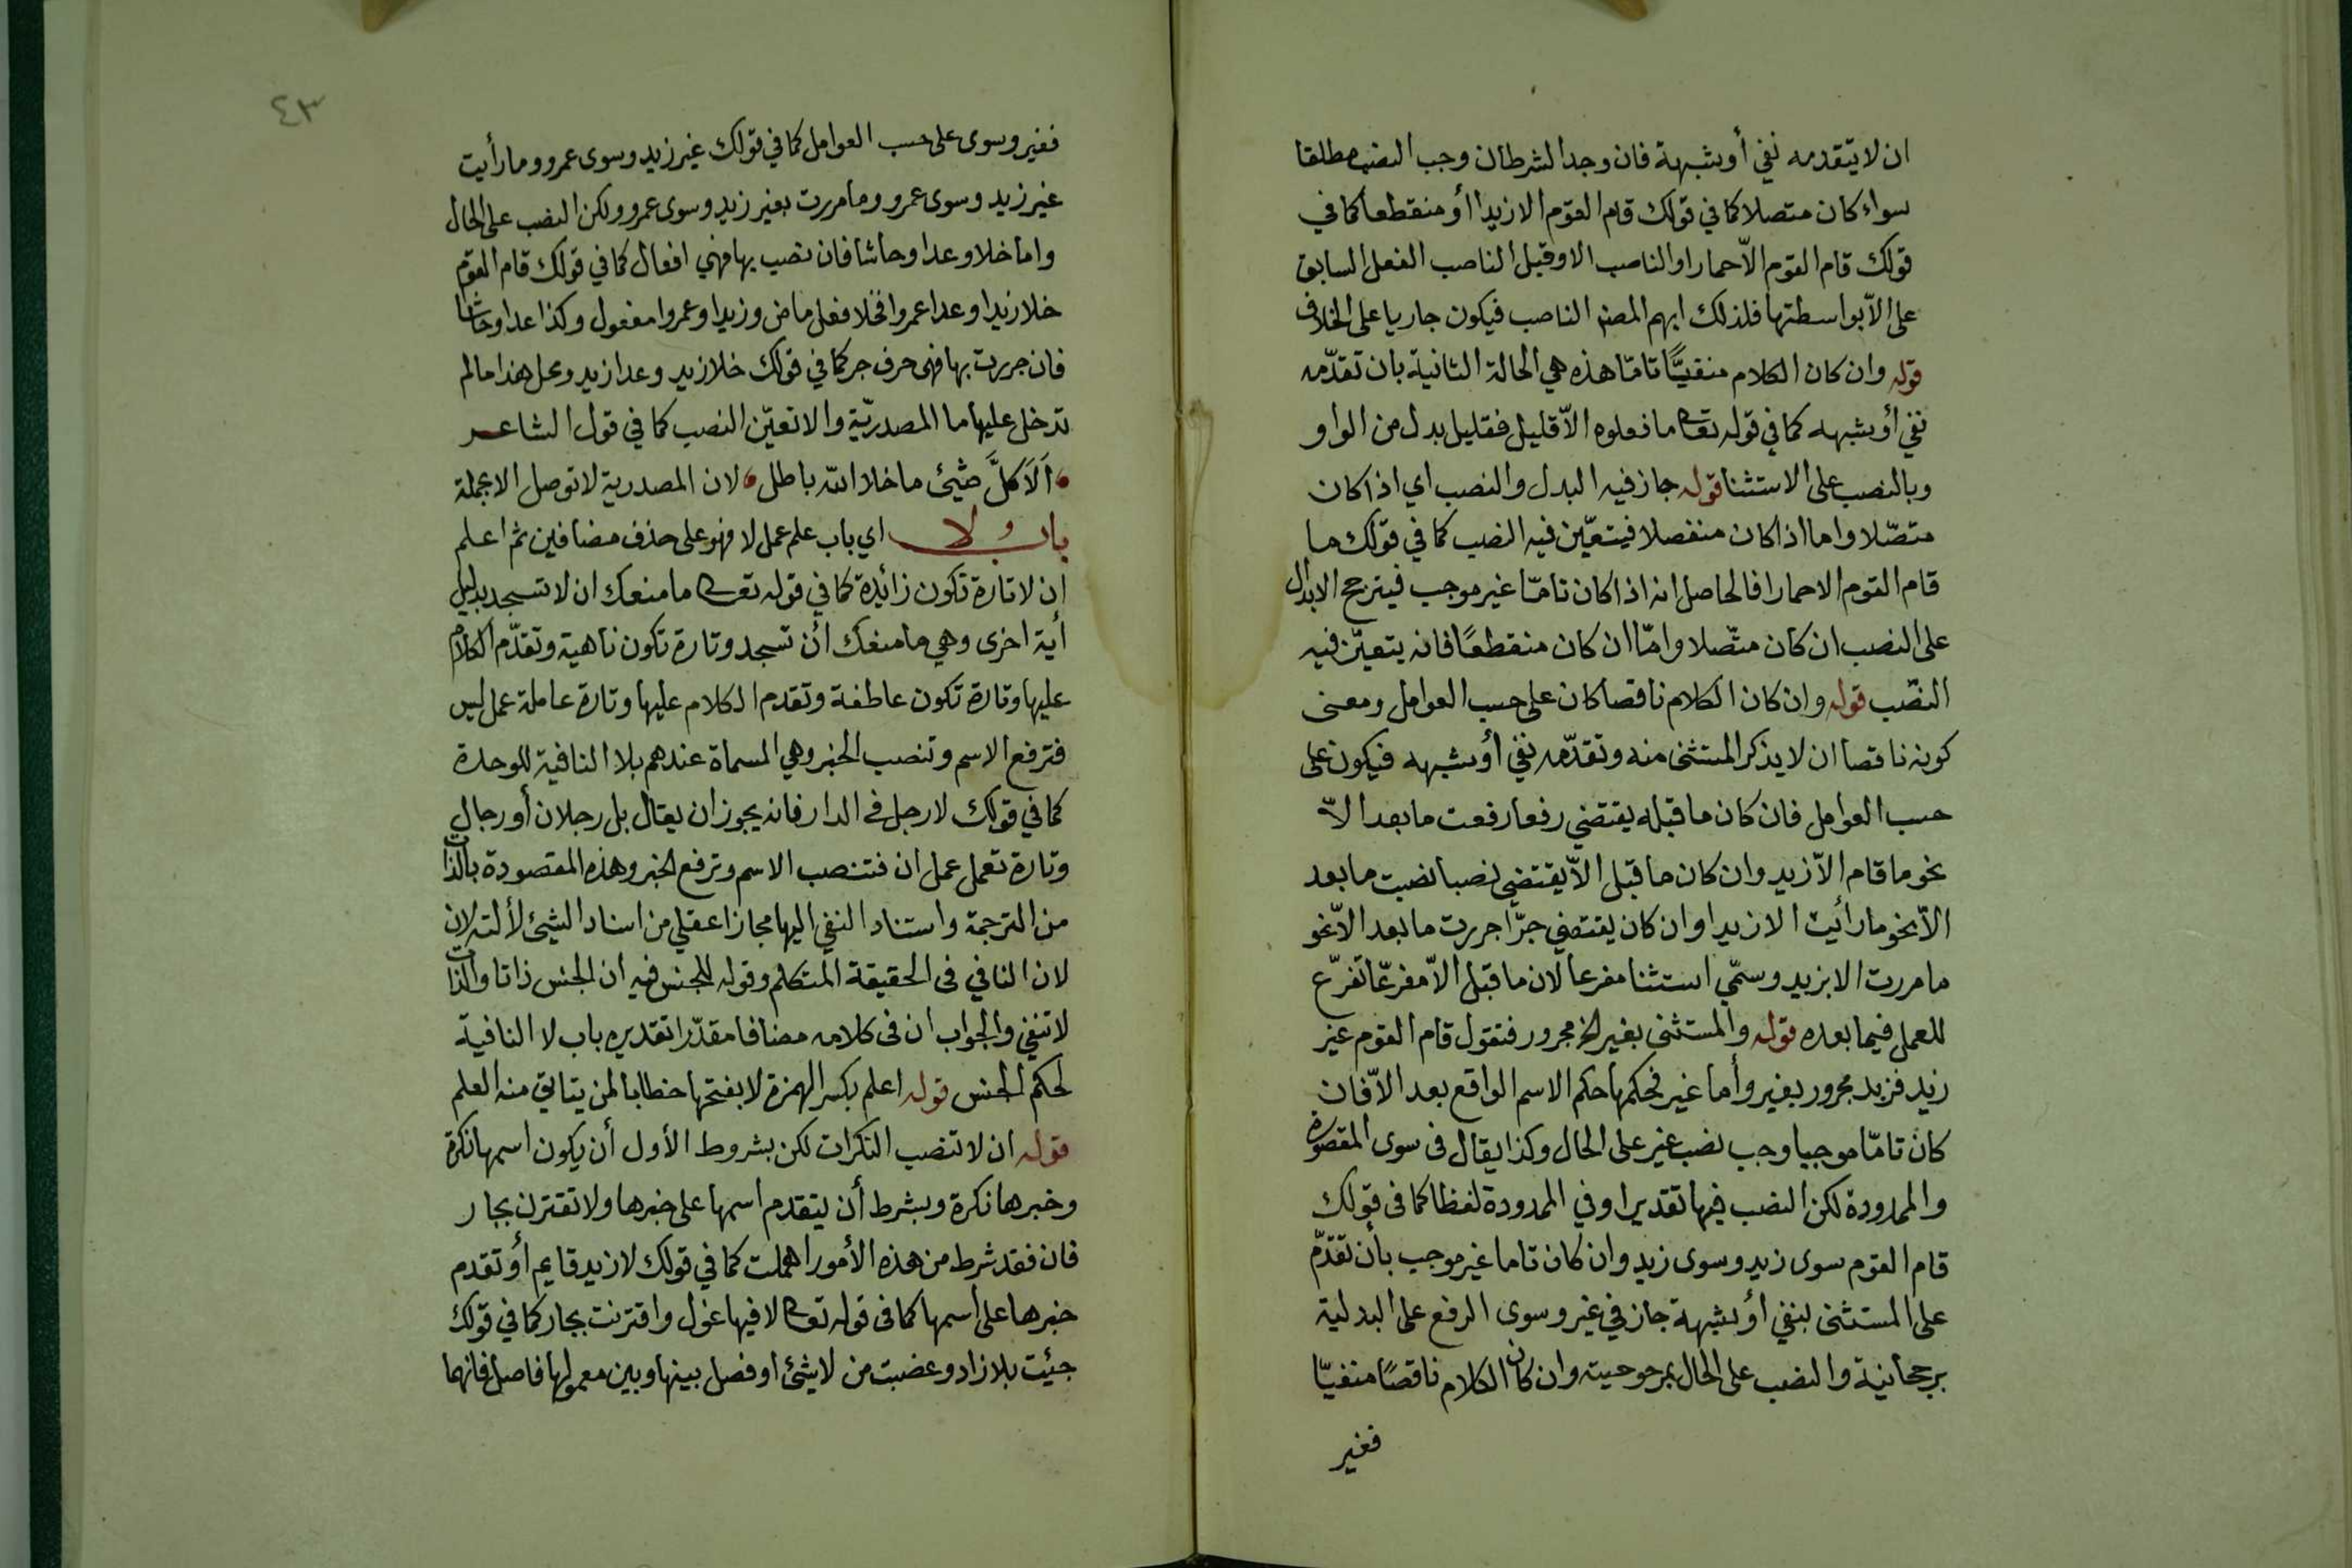 ان لا يتقدمه نفي أو شبهة فان وجد الشرطان وجب النصب مطلقا
سواء كان متصلا كما في قولك قام القوم الا زيدا أو منقطعا كما في
قولك قام القوم الّا حمارا والناصب الا وقيل الناصب الفعل السابق
على الّا بواسطتها فلذلك ابهم المصنف الناصب فيكون جاريا على الخلاف
قوله وان كان الكلام منفيًّا تامّا هذه هي الحالة الثانية بان تقدّمه
نفي أو شبهه كما في قوله تعالى ما فعلوه الّا قليل فقليل بدل من الواو
وبالنصب على الاستثنا قوله جاز فيه البدل والنصب اي اذا كان
متصّلا واما اذا كان منفصلا فيتعيّن فيه النصب كما في قولك ما
قام القوم الا حمارا فالحاصل انه اذا كان تامّا غير موجب فيترجح الابدال
على النصب ان كان متّصلا وامّا ان كان منقطعًا فانه يتعيّن فيه
النصّب قوله وان كان الكلام ناقصا كان على حسب العوامل ومعنى
كونه ناقصا ان لا يذكر المستثنى منه وتقدّمه نفي أو شبهه فيكون على
حسب العوامل فان كان ما قبله يقتضي رفعا رفعت ما بعد الّا
نحو ما قام الّا زيد وان كان ما قبل الّا يقتضي نصبا نصبت ما بعد
الّا نحو ما رأيت الا زيدا وان كان يقتضي جرّا جررت ما بعد الّا نحو
ما مررت الا بزيد وسمّي استثنا مفرعا لان ما قبل الّا مفرغّا تفرّع
للعمل فيما بعده قوله والمستثنى بغير الخ مجرور فتقول قام القوم غير
زيد فزيد مجرور بغير وأما غير فحكمها حكم الاسم الواقع بعد الّا فان
كان تامّا موجبا وجب نصب غير على الحال وكذا يقال فى سوى المقصورة
والممدودة لكن النصب فيها تقديرا وفي الممدودة لفظا كما فى قولك
قام القوم سوى زيد وسوى زيد وان كان تاما غير موجب بأن تقدّم
على المستثنى بنفي أو شبهة جاز في غير وسوى الرفع على البدلية
برجحانية والنصب على الحال بمرجوحيته وان كان الكلام ناقصًا منفيّا
فغير
٤٣
فغير وسوى على حسب العوامل كما في قولك غير زيد وسوى عمرو وما رأيت
غير زيد وسوى عمرو وما مررت بغير زيد وسوى عمرو ولكن النصب على الحال
واما خلا وعدا وحاشا فان نصب بها فهي افعال كما في قولك قام القوم
خلا زيدا وعدا عمروا فخلا فعل ماض وزيدا وعمروا مفعول وكذا عدا وحاشا
فان جررت بها فهى حرف جر كما في قولك خلا زيد وعدا زيد ومحل هذا ما لم
تدخل عليها ما المصدريّة والا تعيّن النصب كما في قول الشاعر
اَلَا كلَّ شيئ ما خلا الله باطل لان المصدرية لا توصل الا بجملة
باب لا اي باب علم عمل لا فهو على حذف مضافين ثم اعلم
ان لا تارة تكون زائيدة كما في قوله تعالى ما منعك ان لا تسجد بدليل
أية اخرى وهي ما منعك أن تسجد وتارة تكون ناهية وتقدّم الكلام
عليها وتارة تكون عاطفة وتقدم الكلام عليها وتارة عاملة عمل ليس
فترفع الاسم وتنصب الخبر وهي المسماة عندهم بلا النافية للوحدة
كما في قولك لا رجل فى الدار فانه يجوز ان يقال بل رجلان أو رجال
وتارة تعمل عمل ان فتنصب الاسم وترفع الخبر وهذه المقصودة بالذات
من الترجمة واستناد النفي اليها مجازا عقلي من اسناد الشيئ لألته لان
لان النافي فى الحقيقة المتكلم وقوله للجنس فيه ان الجنس ذاتا والذات
لا تنفي والجواب ان فى كلامه مضافا مقدّرا تقديره باب لا النافية
لحكم الجنس قوله اعلم بكسر الهمزة لا بفتحها خطابا لمن يتاتي منه العلم
قوله ان لا تنصب النكرات لكن بشروط الأول أن يكون اسمها نكرة
وخبرها نكرة وبشرط أن يتقدم اسمها على خبرها ولا تقترن بجار
فان فقد شرط من هذه الأمور اهملت كما في قولك لا زيد قايم أو تقدم
خبرها على اسمها كما فى قوله تعالى لا فيها غول واقترنت بجار كما في قولك
جيئت بلا زاد وغضبت من لا يشئ او فصل بينها وبين معمولها فاصل فانهما